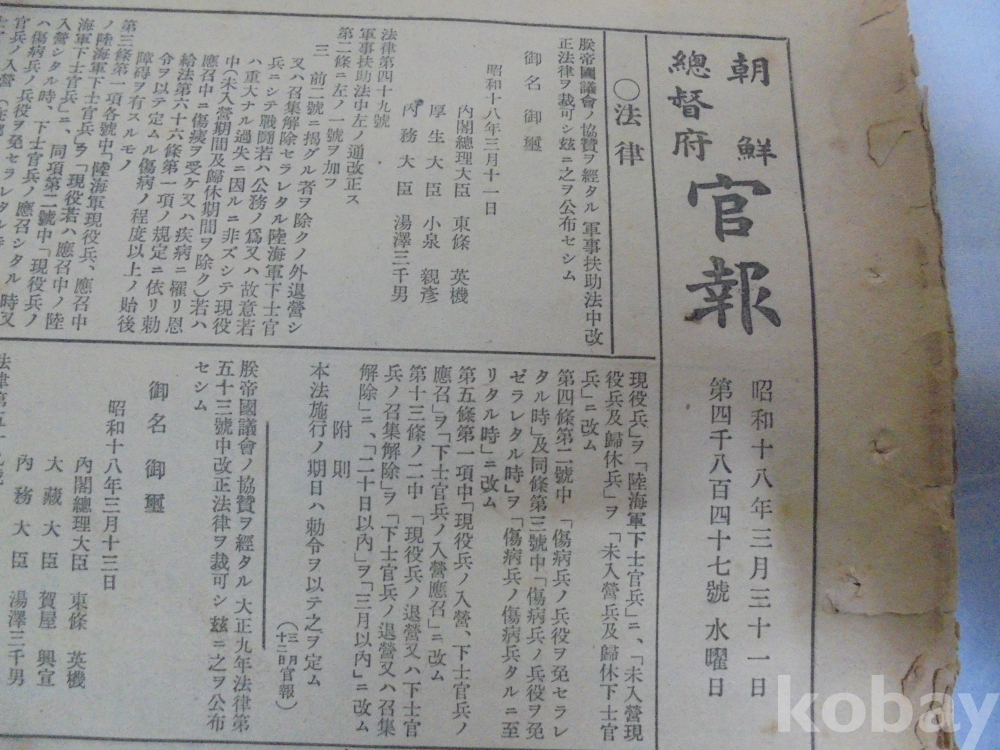 朝鮮
總督府
官報
昭和十八年三月三十一日
第四千八百四十七號 水曜日
〇法律
朕帝國議會ノ協贊ヲ經タル軍事扶助法中改
正法律ヲ裁可シ玆ニ之ヲ公布セシム
御名御璽
昭和十八年三月十一日
內閣總理大臣 東條英機
厚生大臣 小泉親彥
內務大臣 湯澤三千男
法律第四十九號
軍事扶助法中左ノ通改正ス
第二條ニ左ノ一號ヲ加フ
三 前二號ニ揭グル者ヲ除クノ外退營シ
又ハ召集解除セラレタル陸海軍下士官
兵ニシテ戰鬪若ハ公務ノ爲又ハ故意若
ハ重大ナル過失ニ因ルニ非ズシテ現役
中(未入營期間及歸休期間ヲ除ク)若ハ
應召中ニ傷痍ヲ受ケ又ハ疾病ニ罹リ恩
給法第六十六條第一項ノ規定ニ依リ勅
令ヲ以テ定ムル傷病ノ程度以上ノ貽後
障碍ヲ有スルモノ
第三條第一項各號中「陸海軍現役兵、應召中
ノ陸海軍下士官兵」ヲ「現役若ハ應召中ノ陸
海軍下士官兵」ニ、同項第二號中「現役兵ノ
入營シタル時、下士官兵ノ應召シタル時又
ハ傷病兵ノ兵役ヲ免セラレタル
官兵ノ入營
現役兵」ヲ「陸海軍下士官兵」ニ、「未入營現
役兵及歸休兵」ヲ「未入營兵及歸休下士官
兵」ニ改ム
第四條第二號中「傷病兵ノ兵役ヲ免セラレ
タル時」及同條第三號中「傷病兵ノ兵役ヲ免
ゼラレタル時」ヲ「傷病兵ノ傷病兵タルニ至
リタル時」ニ改ム
第五條第一項中「現役兵ノ入營、下士官兵ノ
應召」ヲ「下士官兵ノ入營應召」ニ改ム
第十三條ノ二中「現役兵ノ退營又ハ下士官
兵ノ召集解除」ヲ「下士官兵ノ退營又ハ召集
解除」ニ、「二十日以內」ヲ「三月以內」ニ改ム
附則
本法施行ノ期日ハ勅令ヲ以テ之ヲ定ム
(三月十二日官報)
朕帝國議會ノ協贊ヲ經タル大正九年法律第
五十三號中改正法律ヲ裁可シ玆ニ之ヲ公布
セシム
御名御璽
昭和十八年三月十三日
內閣總理大臣 東條英機
大藏大臣 賀屋興宣
內務大臣 湯澤三千男
kobay